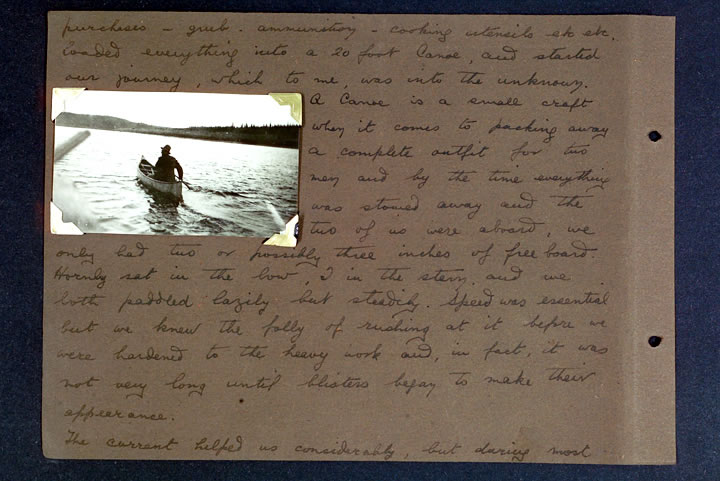 purchases - grub - ammunition - cooking utensils etc etc.
loaded everything into a 20 foot Canoe, and started
our journey, which to me, was into the unknown.
A Canoe is a small craft
when it comes to packing away
a complete outfit for two
men and by the time everything
was stowed away and the
two of us were aboard, we
only had two or possibly three inches of free board.
Hornby sat in the bow, I in the stern, and we
both paddled lazily but steadily. Speed was essential
but we knew the folly of rushing at it before we
were hardened to the heavy work and, in fact, it was
not very long until blisters began to make their
appearance.
The current helped us considerably, but during most